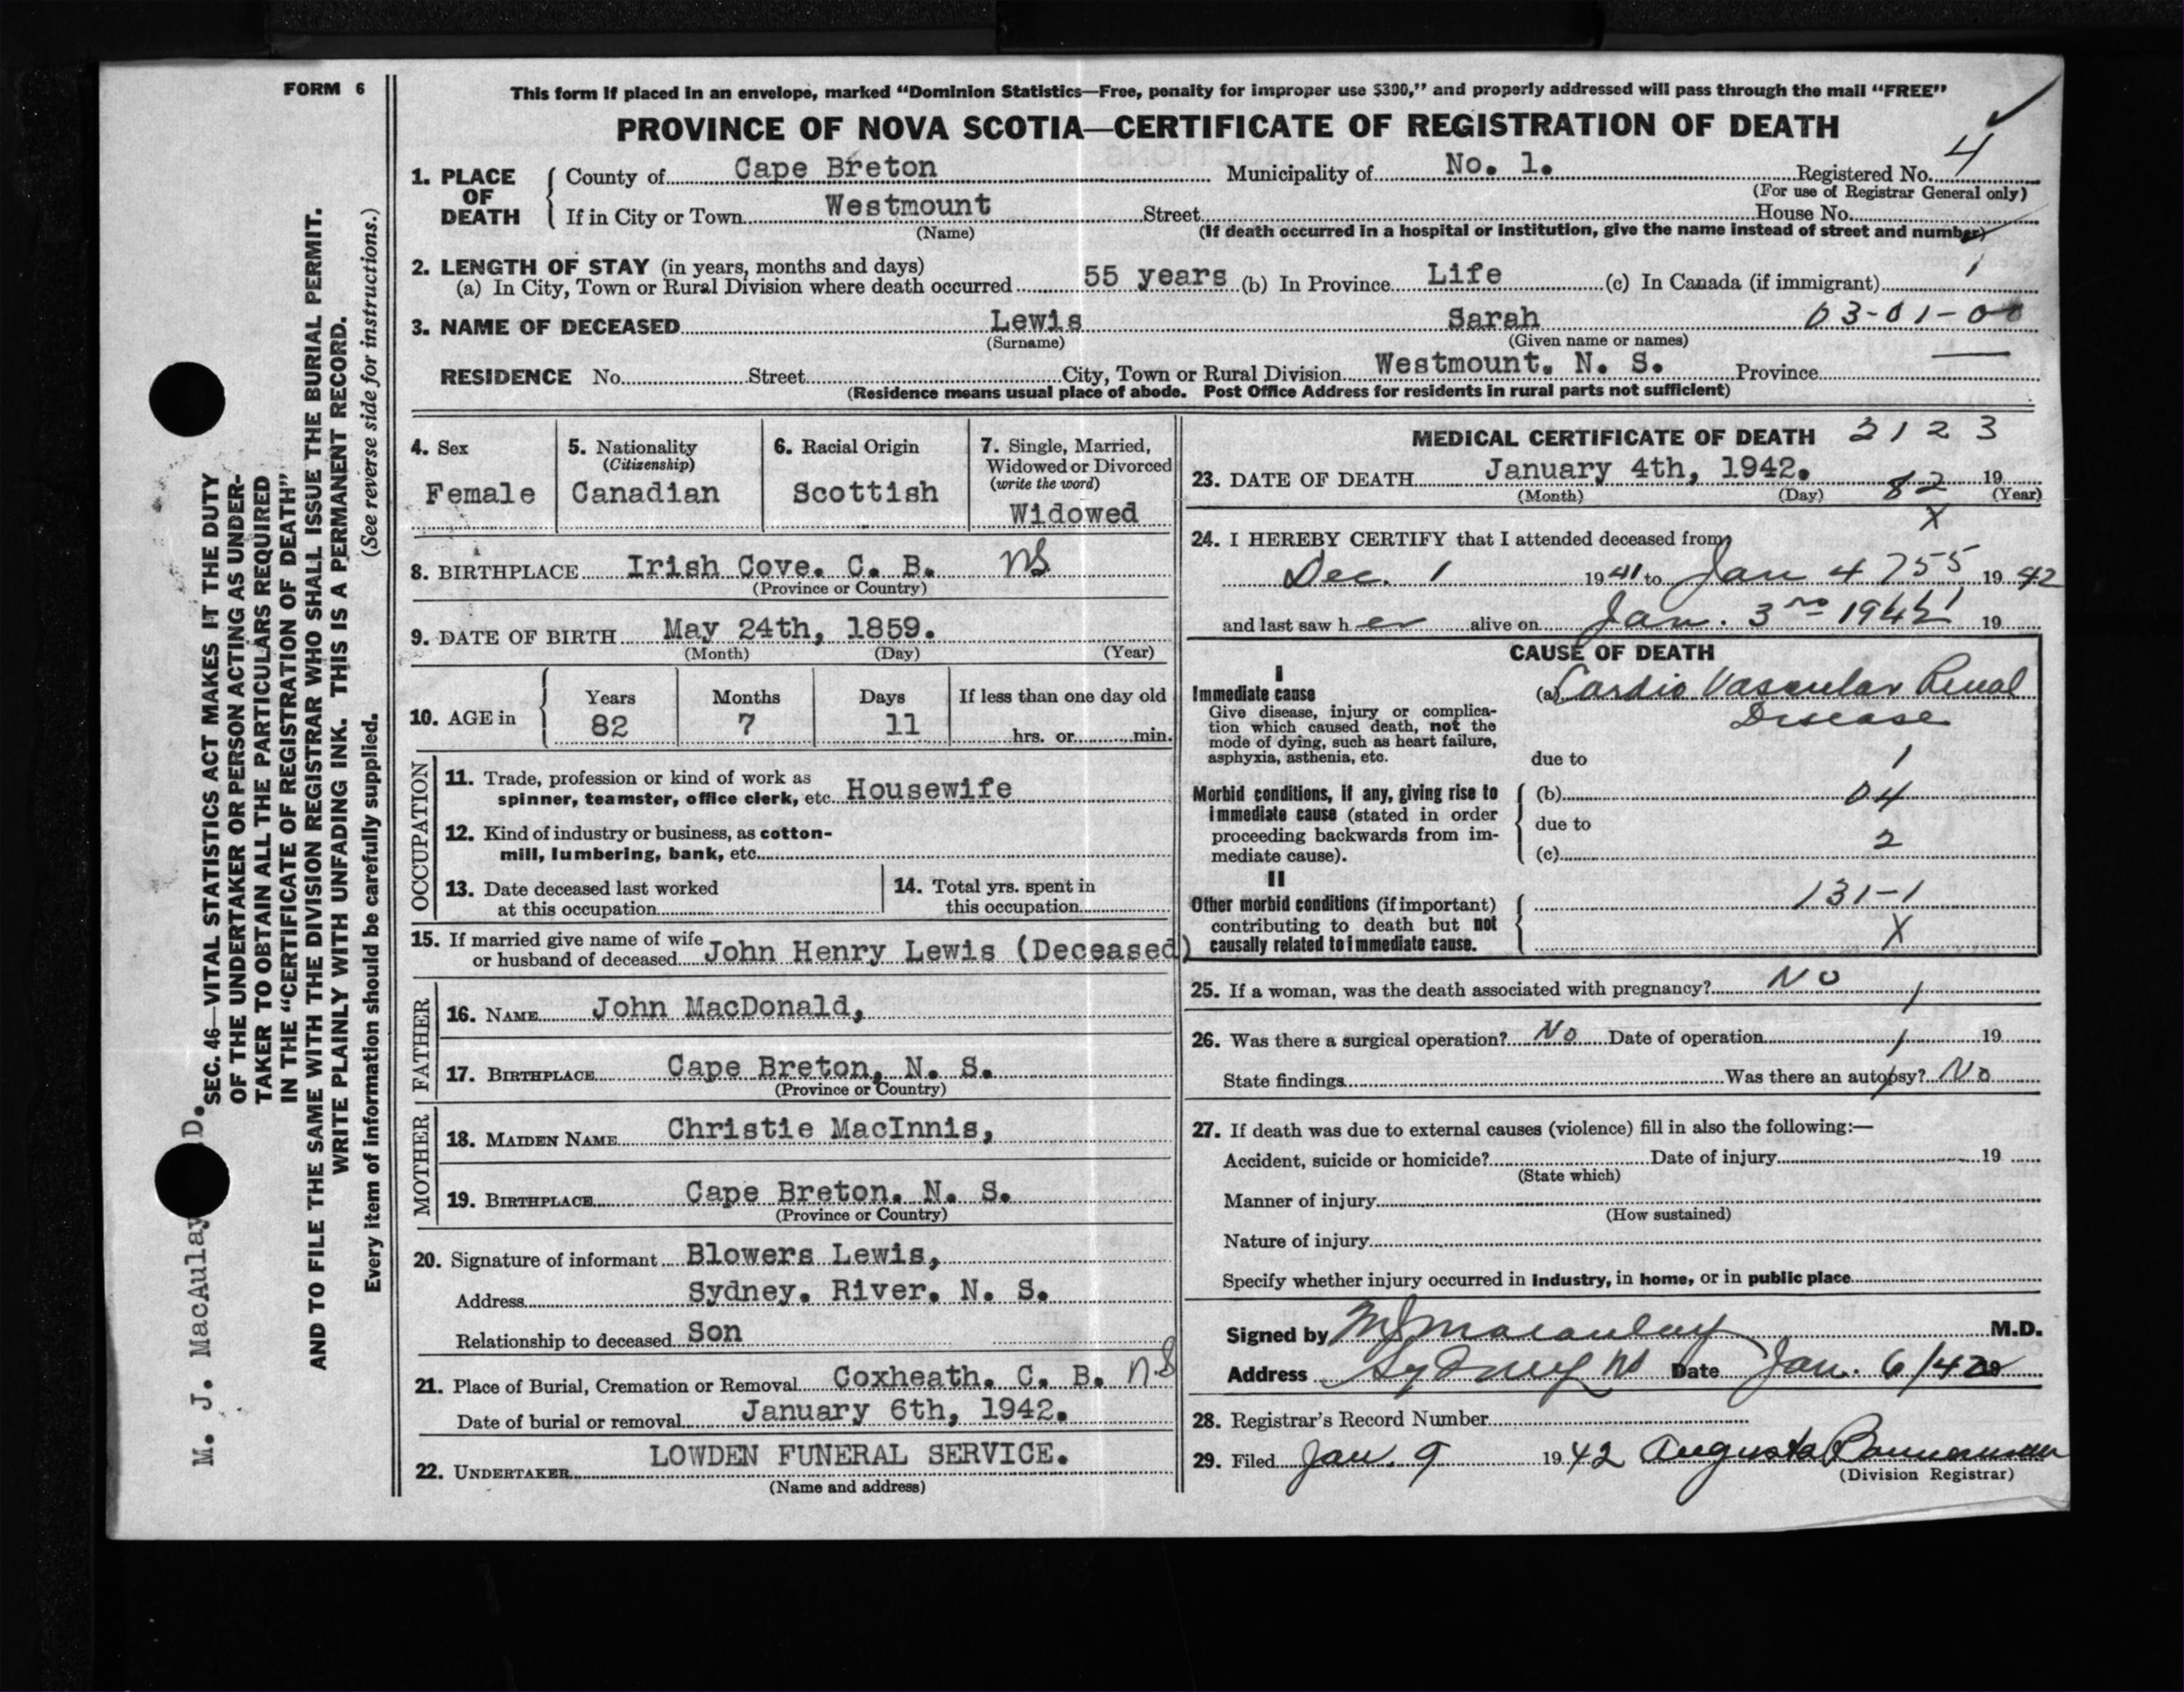 FORM 6
This form if placed in an envelope, marked “Dominion Statistics—Free, penalty for improper use $300,” and properly addressed will pass through the mail “FREE”
PROVINCE OF NOVA SCOTIA—CERTIFICATE OF REGISTRATION OF DEATH
1. PLACE OF DEATH { County of Cape Breton Municipality of No. 1. Registered No. 4
(For use of Registrar General only)
If in City or Town Westmount Street House No.
(Name) (If death occurred in a hospital or institution, give the name instead of street and number)
2. LENGTH OF STAY (in years, months and days)
(a) In City, Town or Rural Division where death occurred 55 years (b) In Province Life (c) In Canada (if immigrant)
3. NAME OF DECEASED Lewis Sarah 03-01-00
(Surname) (Given name or names)
RESIDENCE No. Street City, Town or Rural Division Westmount. N. S. Province
(Residence means usual place of abode. Post Office Address for residents in rural parts not sufficient)
4. Sex
Female
5. Nationality
(Citizenship)
Canadian
6. Racial Origin
Scottish
7. Single, Married,
Widowed or Divorced
(write the word)
Widowed
8. BIRTHPLACE Irish Cove. C. B. NS
(Province or Country)
9. DATE OF BIRTH May 24th, 1859.
(Month) (Day) (Year)
10. AGE in { Years Months Days If less than one day old
82 7 11 hrs. or min.
OCCUPATION
11. Trade, profession or kind of work as
spinner, teamster, office clerk, etc. Housewife
12. Kind of industry or business, as cotton-
mill, lumbering, bank, etc.
13. Date deceased last worked
at this occupation
14. Total yrs. spent in
this occupation
15. If married give name of wife
or husband of deceased John Henry Lewis (Deceased)
FATHER
16. NAME John MacDonald,
17. BIRTHPLACE Cape Breton, N. S.
(Province or Country)
MOTHER
18. MAIDEN NAME Christie MacInnis,
19. BIRTHPLACE Cape Breton. N. S.
(Province or Country)
20. Signature of informant Blowers Lewis,
Address Sydney. River. N. S.
Relationship to deceased Son
21. Place of Burial, Cremation or Removal Coxheath. C. B. NS
Date of burial or removal January 6th, 1942.
22. UNDERTAKER LOWDEN FUNERAL SERVICE.
(Name and address)
MEDICAL CERTIFICATE OF DEATH 2123
23. DATE OF DEATH January 4th, 1942. 82 19
(Month) (Day) (Year)
X
24. I HEREBY CERTIFY that I attended deceased from
Dec. 1 1941 to Jan 4 755 1942
and last saw her alive on Jan. 3rd 1942 19
CAUSE OF DEATH
I
Immediate cause
Give disease, injury or complica-
tion which caused death, not the
mode of dying, such as heart failure,
asphyxia, asthenia, etc.
(a) Cardio Vascular Renal
Disease
due to 1
Morbid conditions, if any, giving rise to
immediate cause (stated in order
proceeding backwards from im-
mediate cause).
(b) 04
due to
(c) 2
II
Other morbid conditions (if important)
contributing to death but not
causally related to immediate cause.
131-1
X
25. If a woman, was the death associated with pregnancy? No
26. Was there a surgical operation? No Date of operation 19
State findings Was there an autopsy? No
27. If death was due to external causes (violence) fill in also the following:—
Accident, suicide or homicide? Date of injury 19
(State which)
Manner of injury
(How sustained)
Nature of injury
Specify whether injury occurred in industry, in home, or in public place
Signed by M J Macaulay M.D.
Address Sydney NS Date Jan. 6/42 19
28. Registrar's Record Number
29. Filed Jan. 9 1942 Augusta
(Division Registrar)
SEC. 46—VITAL STATISTICS ACT MAKES IT THE DUTY
OF THE UNDERTAKER OR PERSON ACTING AS UNDER-
TAKER TO OBTAIN ALL THE PARTICULARS REQUIRED
IN THE “CERTIFICATE OF REGISTRATION OF DEATH”
AND TO FILE THE SAME WITH THE DIVISION REGISTRAR WHO SHALL ISSUE THE BURIAL PERMIT.
WRITE PLAINLY WITH UNFADING INK. THIS IS A PERMANENT RECORD.
Every item of information should be carefully supplied. (See reverse side for instructions.)
M. J. MacAulay D.